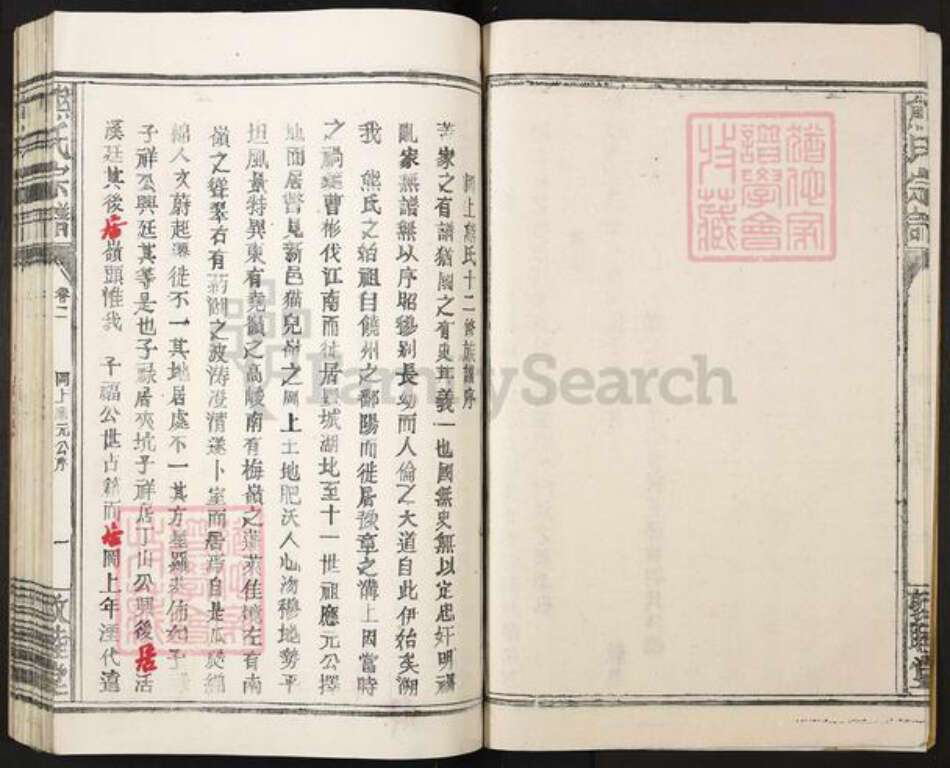 岡上熊氏十二修族譜序
嘗家之有譜猶國之有史其義一也國無史無以定忠奸明禍
亂家無譜無以序昭穆别長幼而人倫之大道自此伊始矣溯
我 熊氏之始祖自饒州之鄱陽而徙居豫章之溝上因當時
之禍 曹彬伐江南而徙居 城湖北至十一世祖應元公擇
地而居瞥見新邑猫兒 之岡上土地肥沃人心渤穆地勢平
坦風景特異東有堯嶺之高峻南有梅嶺之蓬萊佳境左有南
嶺之聳翠右有 湖之波濤澄清遂卜室而居焉自是瓜瓞
綿人文蔚起遷徙不一其地居處不一其方星羅 佈如子
子祥公興廷其等是也子祿居夾坑子祥居丁山公興後居活
溪廷其後居嶺頭惟我 子福公世占籍而 岡上年湮代遠
熊氏宗譜
卷二
岡上應元公序
一
敦睦堂
FamilySearch